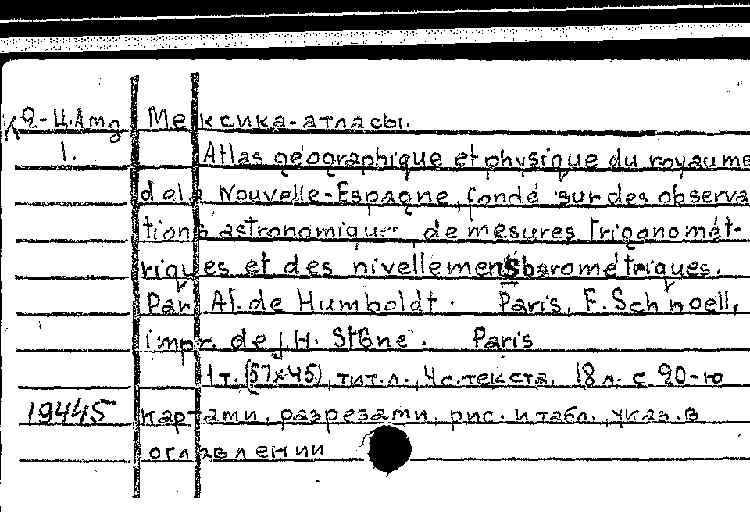 К 9-Ц.Амд Мексика-атласы.
1. Atlas géographique et physique du royaume
de la Nouvelle-Espagne, fondé sur des observa
tions astronomiques, de mesures trigonomét-
riques et des nivellemens barométriques.
Par Al. de Humboldt. Paris, F. Schoell,
impr. de J.H. Stône. Paris
1 т. (57x45), тит.л., 4 с. текста, 18 л. с 20-ю
19445 картами, разрезами, рис. и табл., указ. в
оглавлении